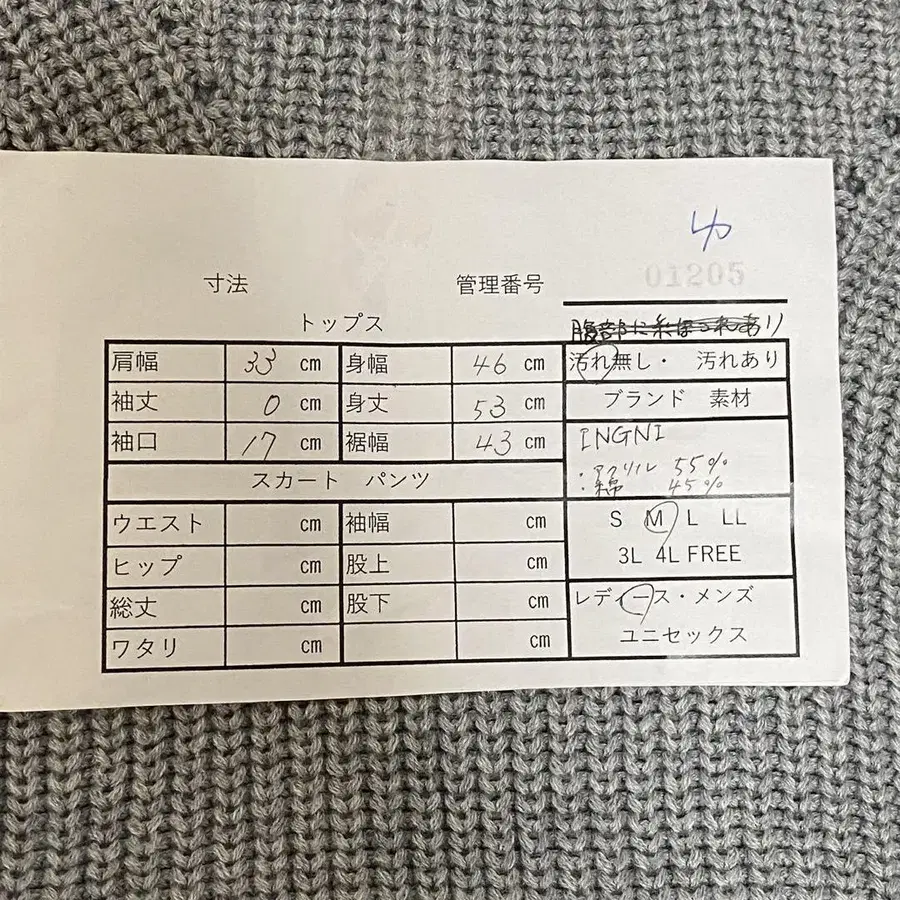 カ
寸法 管理番号 01205
トップス
腹部に糸ほつれあり
肩幅 33 cm 身幅 46 cm 汚れ無し・ 汚れあり
袖丈 0 cm 身丈 53 cm ブランド 素材
袖口 17 cm 裾幅 43 cm INGNI
・アクリル 55%
スカート パンツ
・綿 45%
ウエスト cm 袖幅 cm S M L LL
ヒップ cm 股上 cm 3L 4L FREE
総丈 cm 股下 cm レディース・メンズ
ワタリ cm cm ユニセックス